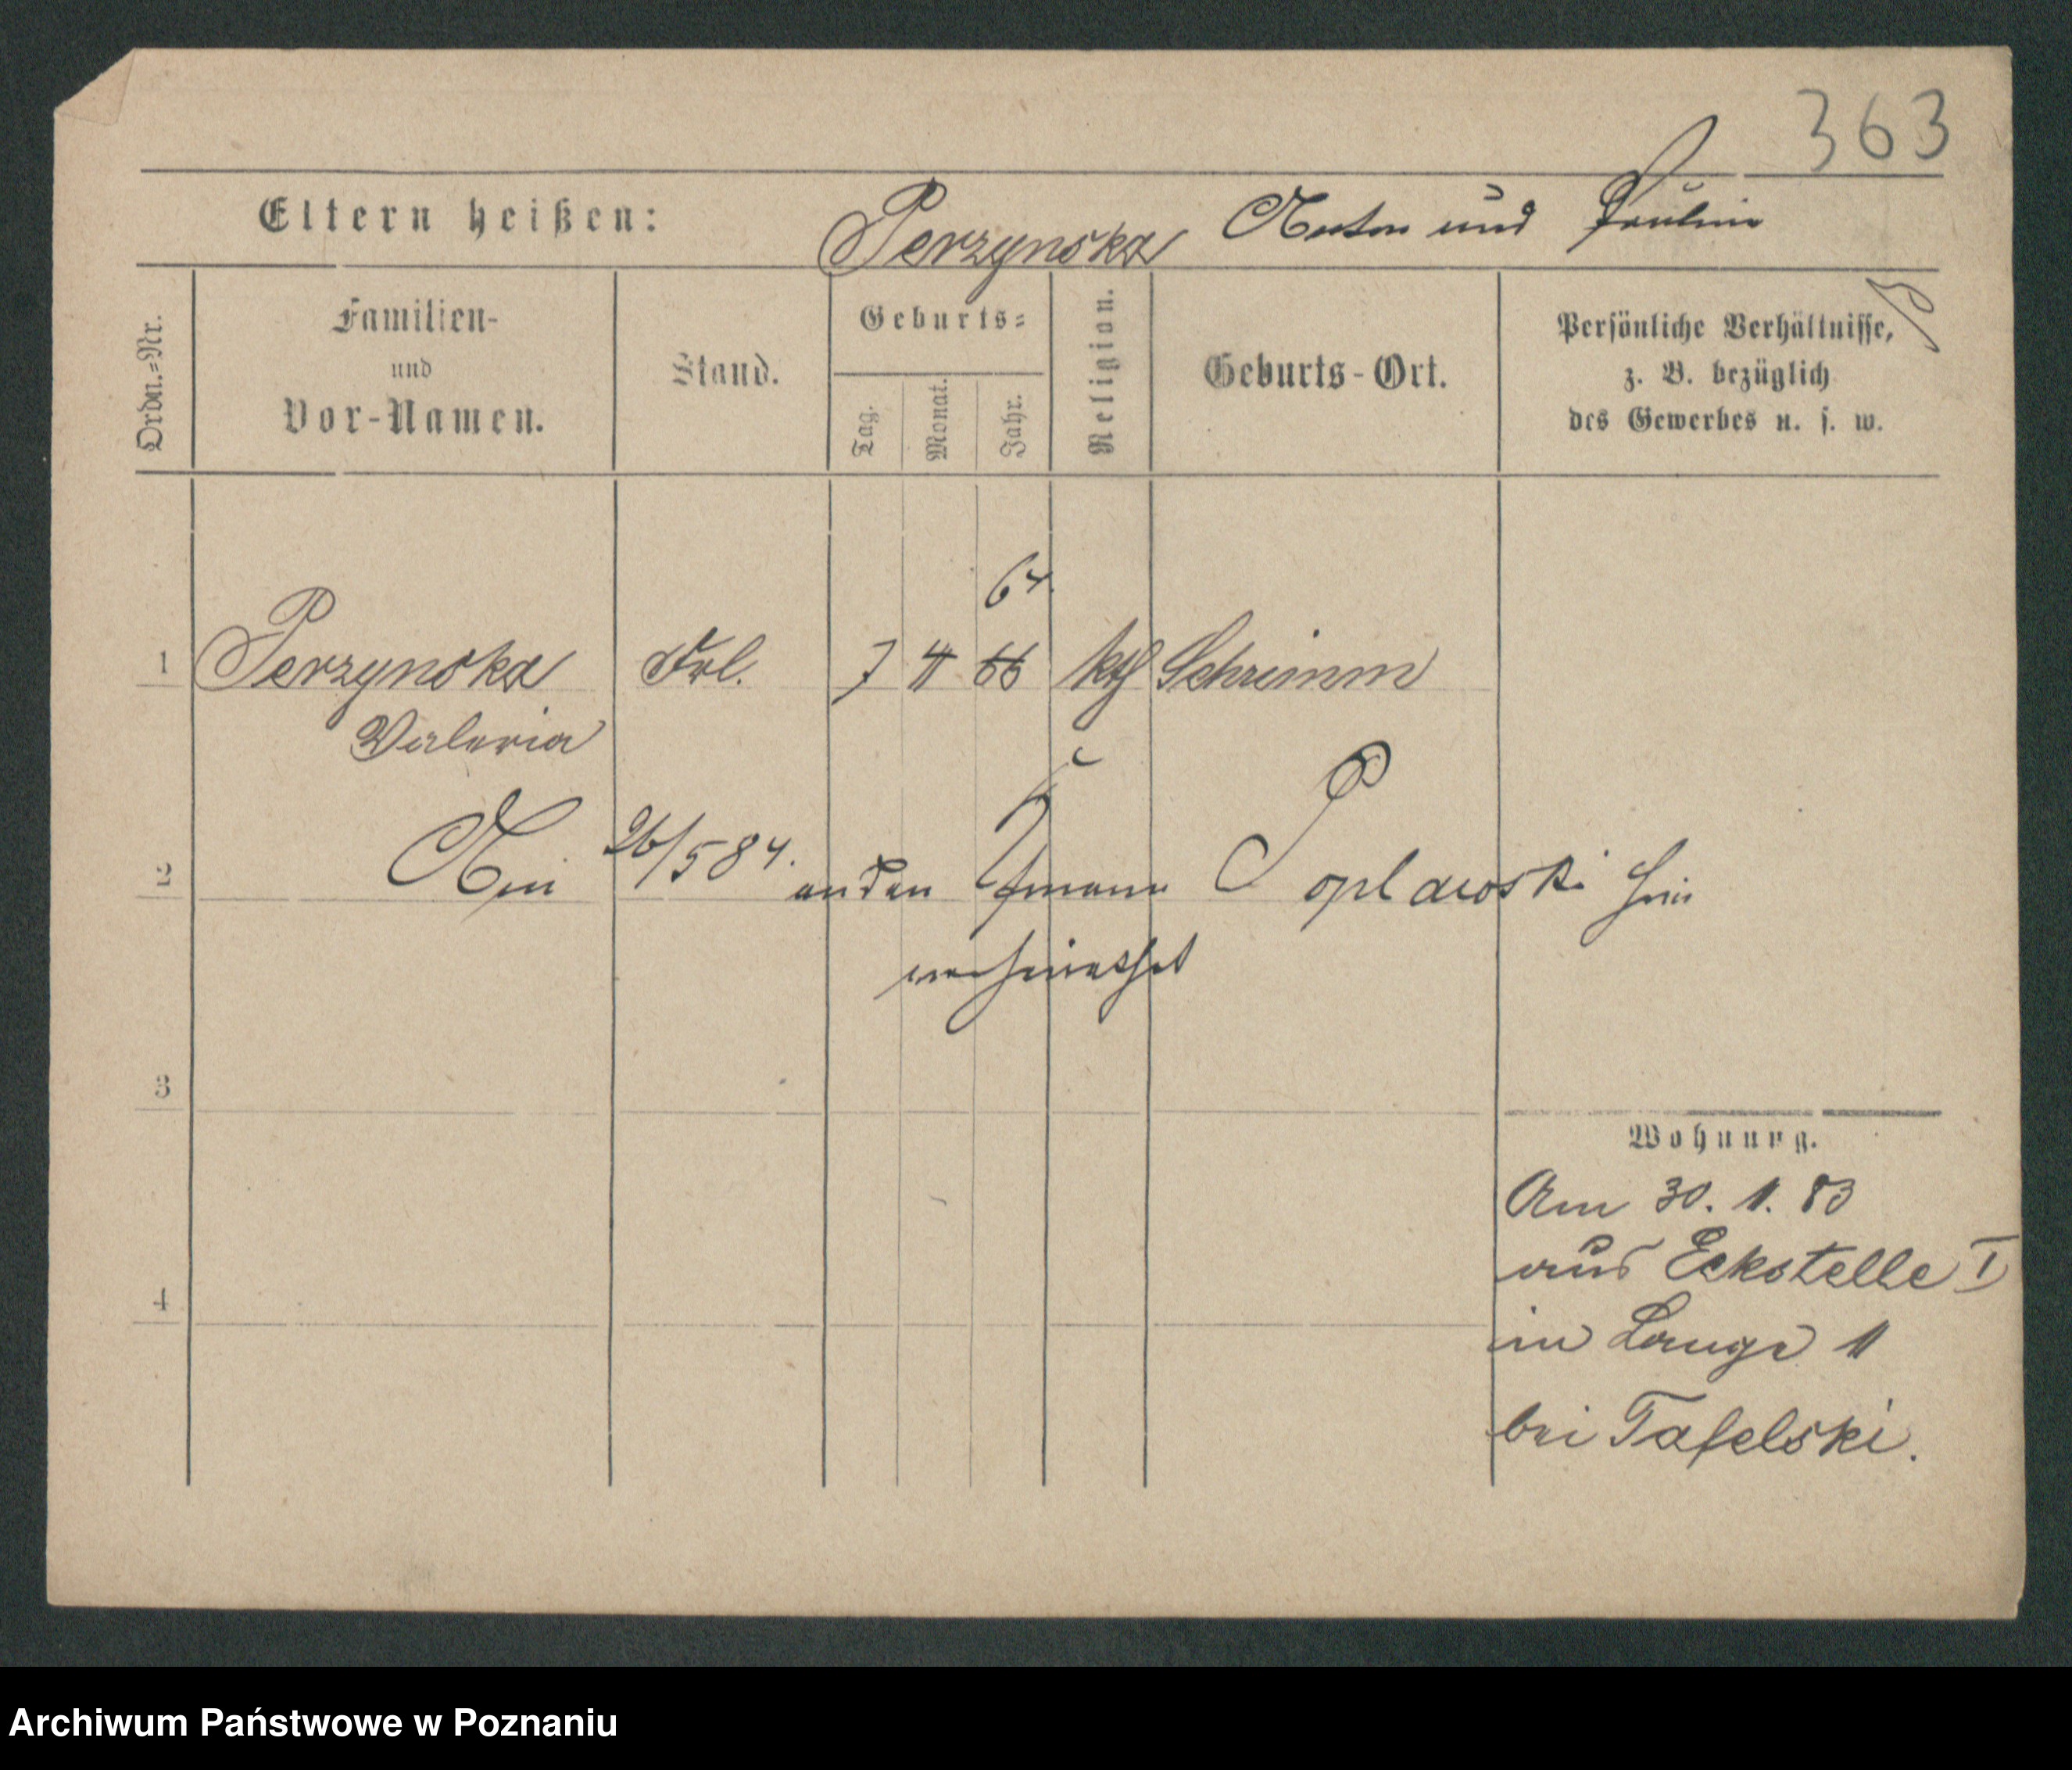 363
Eltern heißen: Perzynska Anton und Pauline
Ordn.=Nr.
Familien-
und
Vor-Namen.
Stand.
Geburts=
Tag.
Monat.
Jahr.
Religion.
Geburts-Ort.
Persönliche Verhältnisse,
z. B. bezüglich
des Gewerbes u. s. w.
64.
1 Perzynska Frl. 7 4 66 kth Schrimm
Valeria
2 26/5 84. an den Poplawski hier
verheirathet
3
Wohnung.
Am 30. 11. 83
aus Eckstelle I
4
in Lange 11
bei Tafelski.
Archiwum Państwowe w Poznaniu